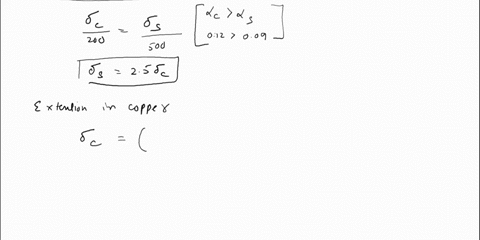 δc/200 = δs/500 [αc > αs
0.12 > 0.09]
δs = 2.5δc
Extention in copper
δc = (